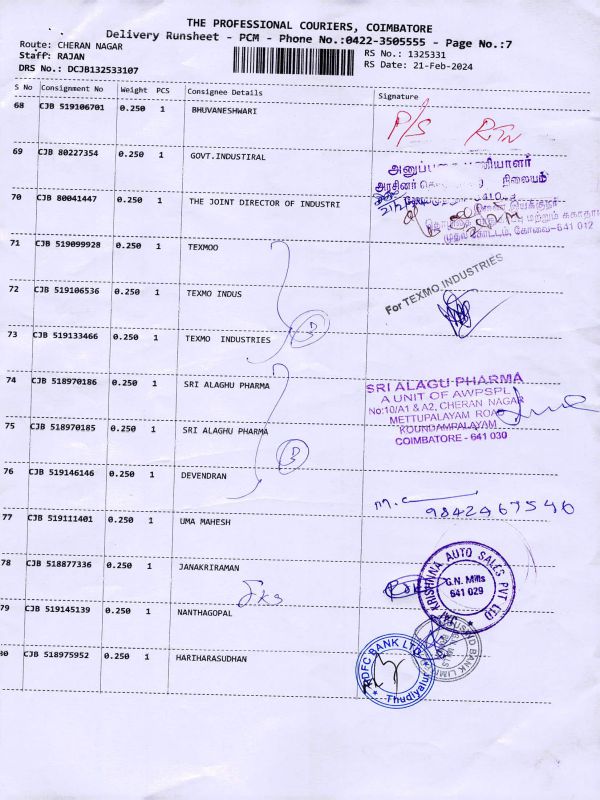 THE PROFESSIONAL COURIERS, COIMBATORE
Delivery Runsheet - PCM - Phone No.:0422-3505555 - Page No.:7
Route: CHERAN NAGAR
RS No.: 1325331
Staff: RAJAN
RS Date: 21-Feb-2024
DRS No.: DCJB132533107
S No Consignment No Weight PCS Consignee Details Signature
68 CJB 519106701 0.250 1 BHUVANESHWARI
P/S RTN
69 CJB 80227354 0.250 1 GOVT.INDUSTIRAL
நிலையம்
70 CJB 80041447 0.250 1 THE JOINT DIRECTOR OF INDUSTRI
மற்றும்
கோவை-641 012
71 CJB 519099928 0.250 1 TEXMOO
For TEXMO INDUSTRIES
72 CJB 519106536 0.250 1 TEXMO INDUS
73 CJB 519133466 0.250 1 TEXMO INDUSTRIES
3
74 CJB 518970186 0.250 1 SRI ALAGHU PHARMA
SRI ALAGU PHARMA
A UNIT OF AWPSPL
No:10/A1 & A2, CHERAN NAGAR
METTUPALAYAM ROAD
KOUNDAMPALAYAM
COIMBATORE - 641 030
75 CJB 518970185 0.250 1 SRI ALAGHU PHARMA
3
76 CJB 519146146 0.250 1 DEVENDRAN
m.c
9842467546
77 CJB 519111401 0.250 1 UMA MAHESH
78 CJB 518877336 1 JANAKRIRAMAN
JAI KRISHNA AUTO SALES PVT LTD
G.N. Mills
641 029
79 CJB 519145139 0.250 1 NANTHAGOPAL
80 CJB 518975952 0.250 1 HARIHARASUDHAN
HDFC BANK LTD.
Thudiyalur